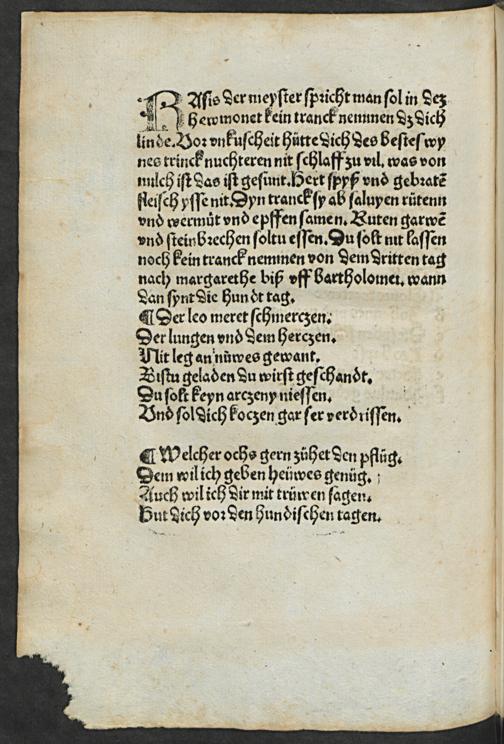 RAsis der meyster spricht man sol in dez
hewmonet kein tranck nemmen dz dich
linde. Vor vnkuscheit hütte dich des bestes wy
nes trinck nuchteren nit schlaff zu vil, was von
milch ist das ist gesunt. Hert spyß vnd gebratē
fleisch ysse nit. Dyn tranck sy ab saluyen rütenn
vnd wermüt vnd epffen samen. Ruten garwē
vnd steinbrechen soltu essen. Du solt nit lassen
noch kein tranck nemmen von dem dritten tag
nach margarethe biß vff Bartholomei. wann
dan synt die hundt tag.
¶ Der leo meret schmerczen.
Der lungen vnd dem herczen.
Nit leg an nüwes gewant.
Bistu geladen du wirst geschandt.
Du solt keyn arczeny niessen.
Vnd sol dich koczen gar ser verdrissen.
¶ Welcher ochs gern zühet den pflüg.
Dem wil ich geben heüwes genüg.
Auch wil ich dir mit trüwen sagen.
Hut dich vor den hundischen tagen.